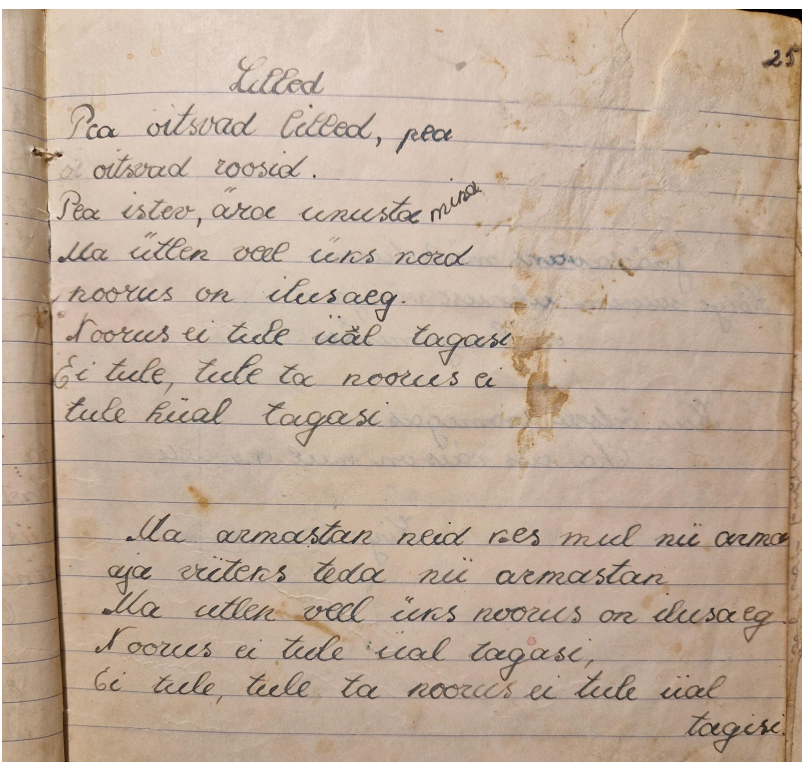 25
Lilled
Pea oitsvad lilled, pea
oitsvad roosid.
Pea istev, ära unusta mina
Ma ütlen veel üks kord
noorus on ilusaeg.
Noorus ei tule iiäl tagasi
Ei tule, tule ta noorus ei
tule hüal tagasi
Ma armastan neid kes mul nii arma
aja viiteks teda nii armastan
Ma utlen veel üks noorus on ilusaeg
Noorus ei tule iial tagasi,
Ei tule, tule ta noorus ei tule iial
tagisi.